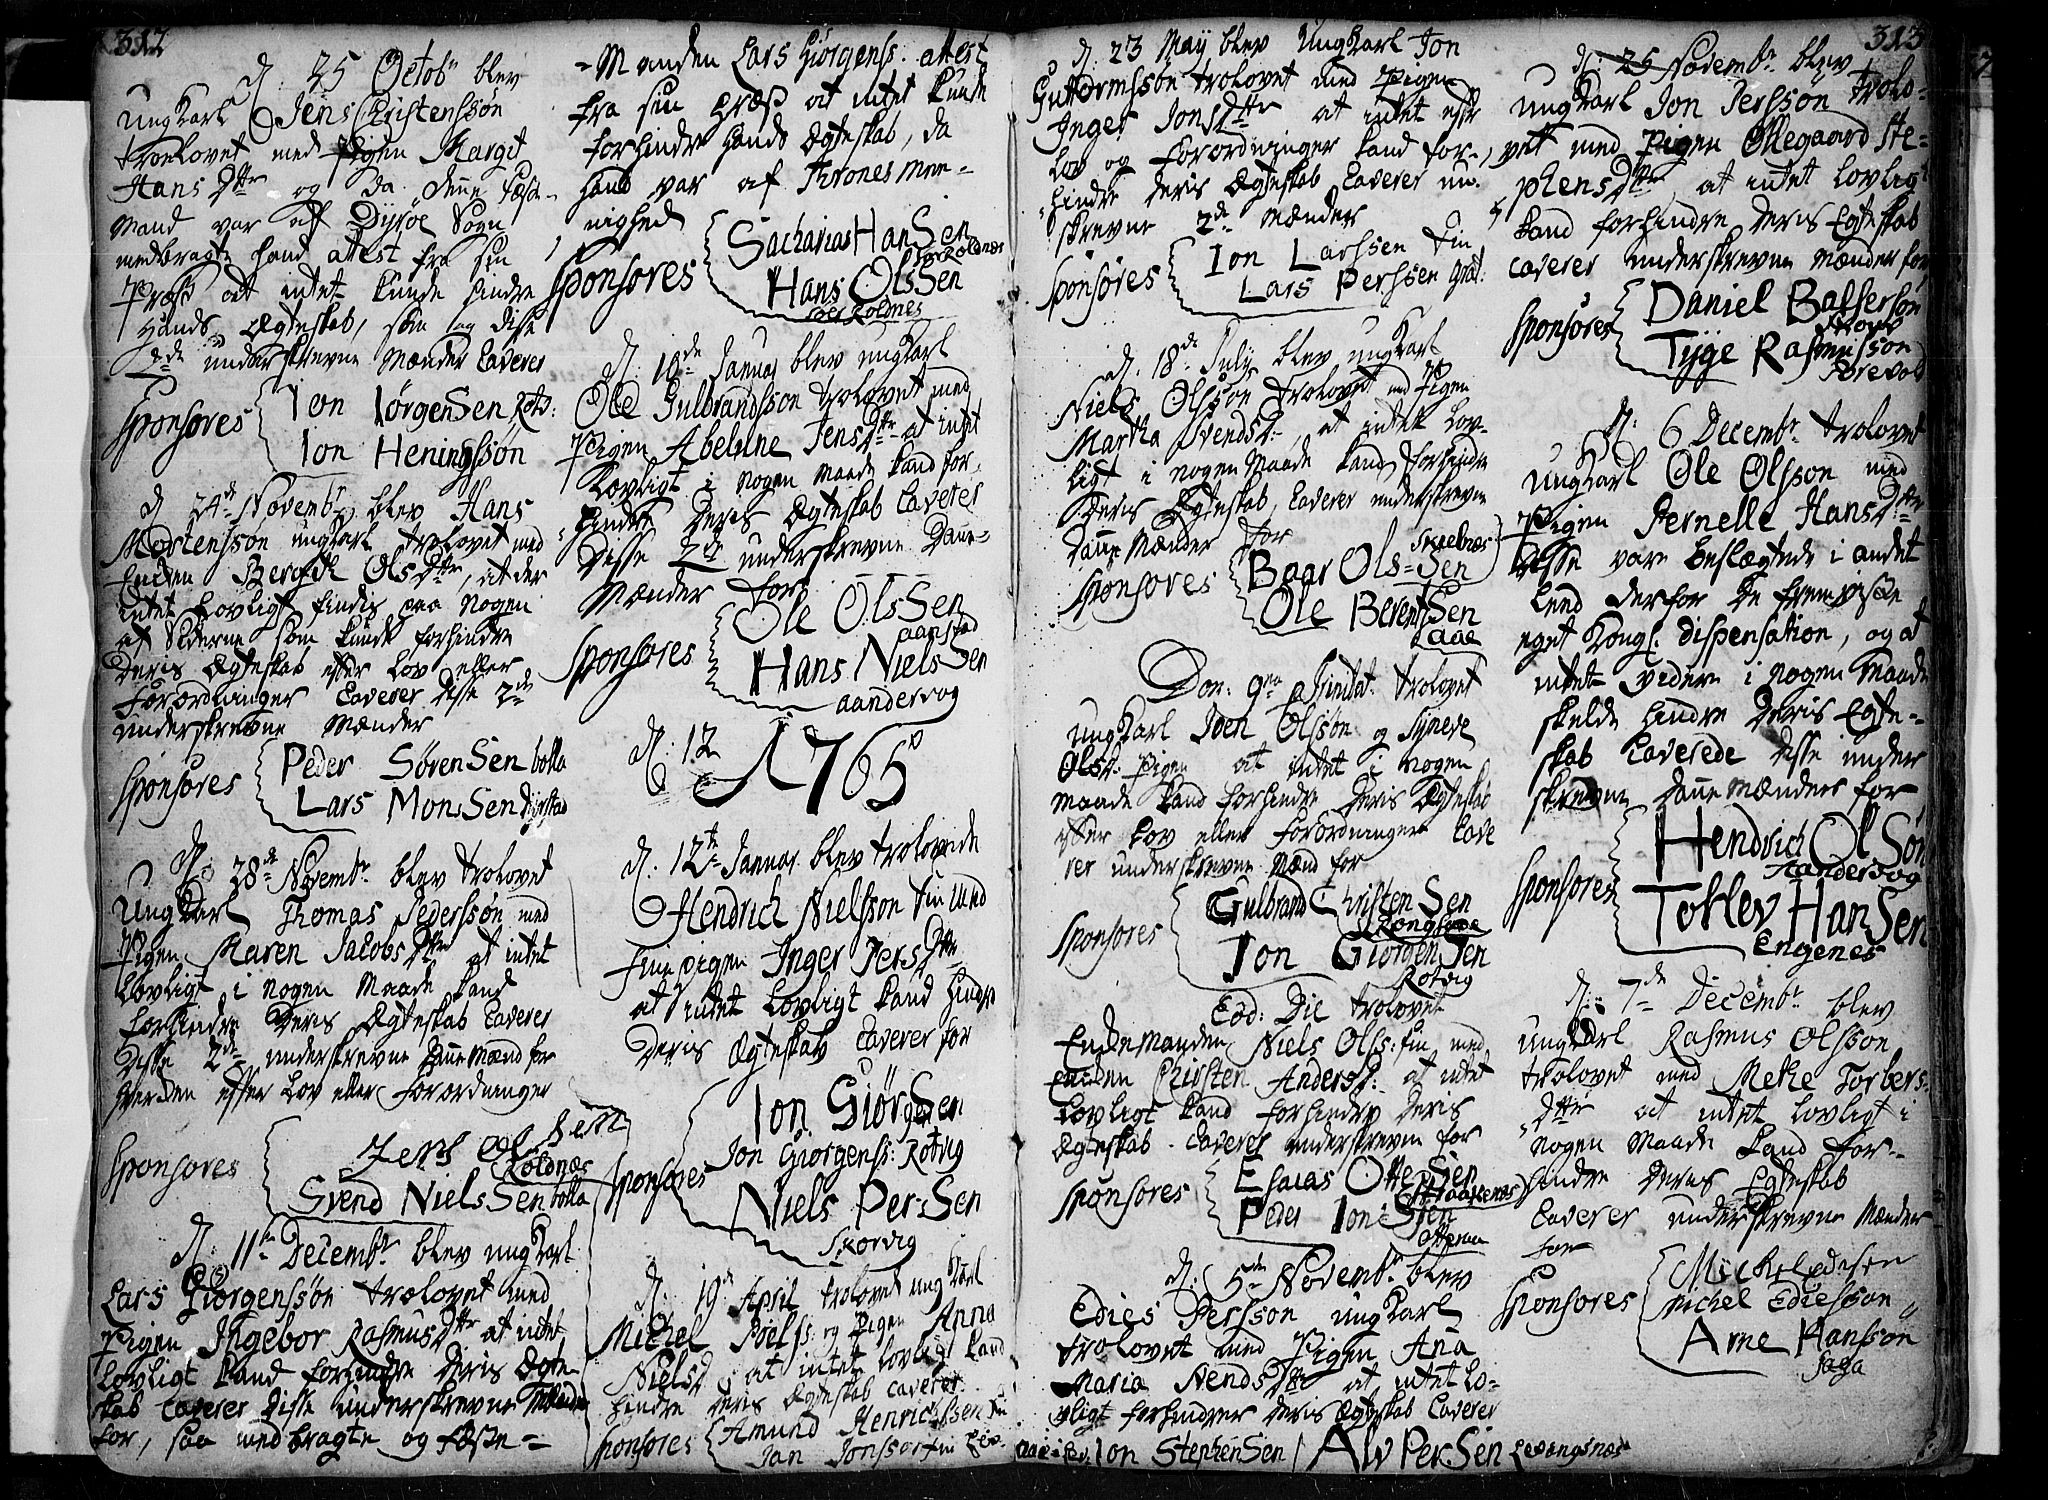 312
d: 25 Octobr blev
Ungkarl Jens Christenssøn
troelovet med Pigen Margit
Hans Dttr og da denne Fæste-
Mand var af Dyrøe Sogn
medbragte hand atest fra sin
Præst at intet kunde hindre
Hands Ægteskab, som og disse
2de underskrevne Mænder Caverer
Sponsores
Ion IørgenSen Rotv:
Ion Heningssøn
d 24de Novembr blev Hans
Mortenssøn ungkarl trolovet med
Enken Bergitte Ols Dttr, at der
intet Lovligt findis paa nogen
af Siderne som kunde forhindre
Deris Ægteskab efter Lov eller
Forordninger Caverer disse 2de
underskrevne Mænder
Sponsores
Peder SørenSen bolla
Lars MonsSen
d: 28de Novembr blev trolovet
Ungkarl Thomas Pederssøn med
Pigen Maren Jacobs Dttr at intet
Lovligt i nogen Maade kand
forhindre Deris Ægteskab Caverer
Disse 2de underskrevne DanneMænd for
efter Lov eller forordninger
Sponsores
Jens Ol Sen
Roldnæs
Svend NielsSen bolla
d: 11te Decembr blev ungkarl
Lars Giørgenssøn trolovet med
Pigen Ingebor RasmusDttr at intet
Lovligt kand forhindre Deris Ægte-
skab Caverer disse underskrevne Mænder
for, saa medbragte og Fæste-
-Manden Lars Giørgenss: attest
fra sin Præst at intet kunde
forhindre hands Ægteskab, da
hand var af Thrones Mee-
nighed
Sponsores
Sacharias HanSen
Roldnæs
Hans OlsSen
Roldnes
d: 10de Januar blev ungkarl
Ole Gulbrandsson trolovet med
Pigen Abelune JensDttr at intet
Lovligt i nogen Maade kand for-
hindre Deris Ægteskab Caverer
Disse 2de underskrevne Danne-
Mænder for
Sponsores
Ole OlsSen
aanstad
Hans NielsSen
aandervog
d: 12
1765
d: 12te Januar. blev trolovede
Hendrich Nielsson Fin med
Finnepigen Inger PersDttr
at intet Lovligt kand hindre
Deris Ægteskab Caverer for
Ion GiørgenSen
Sponsores
Jon Giørgenss: Rotvig
Niels Per:Sen
Skørvig
d: 19de April trolovet ungkarl
Michel Poels: og Pigen Anna
NielsD at intet lovligt kand
hindre deris Ægteskab caverer
Sponsores
Amund Henrichsen Fin
Jan Jonsson fin
d. 23 Maÿ blev Ungkarl Jon
Guttormsson trolovet med Pigen
Inger JonsDttr at intet efter
Lov og Forordninger kand for-
hindre deris Ægteskab Caverer un-
skrevne 2de Mænder
Sponsores
Ion Larssen Fin
Lars Perssen
d. 18de July blev ungkarl
Niels Olsson trolovet med Pigen
Martha SvendsD:, at intet Lov-
ligt i nogen Maade kand forhindre
Deris Ægteskab, Caverer underskrevne
Danne Mænder for
Sponsores
Baar Ols=Sen
Ole BerentSen
Laae
Dom: 9na Trinitat: trolovet
ungkarl Joen Olssøn og Synneve
OlsD: Pigen at intet i nogen
maade kand forhindre Deris Ægteskab
efter Lov eller forordninger Cave
rer underskrevne Mænd for
Sponsores
Gulbrand ChristenSen
Kongsvee
Ion GiørgenSen
Rotvig
Eod: Die trolovet
EnkeManden Niels Olss: fin med
Enken Chirsten AndersD: at intet
Lovligt kand forhindre Deris
Ægteskab. Caverer underskrevne for
Sponsores
Esaias OtteSen
Peder Ion:Sen
d: 5te Novembr blev
Edies Perssøn Ungkarl
trolovet med Pigen Ana
Maria SvendsDttr at intet Lo-
vligt forhindrer Deris Ægteskab Caverer
Ion StephenSen / Alv Per:Sen Levangsnæs
313
d: 25 Novembr blev
Ungkarl Jon Jerssøn trolo-
vet med Pigen Ollegaard Ste-
phensDttr, at intet Lovligt
kand forhindre Deris Egteskab
Caverer underskrevne Mænder for
Sponsores
Daniel Balserssøn
Tÿge Rasmussøn
d: 6 Decembr trolovet
ungkarl Ole Olsson med
Pigen Pernelle HansDttr
Disse vare beslægtede i andet
Leed derfor de fremviste
eget Kongl: dispensation, og at
intet videre i nogen Maade
skulde hindre Deris Egte-
skab Caverede disse under
skrevne Danne Mænder for
Sponsores
Hendrich OlSøn
Aandervog
Tollev HanSen
Engenes
d: 7de Decembr blev
ungkarl Rasmus Olsson
trolovet med Mette Torbers-
Dttr at intet lovligt i
nogen Maade kand for-
hindre Deris Egteskab
Caverer underskrevne Mænder
for
Sponsores
Michel Edisen
Michel Ediesson
Arne Hanssøn